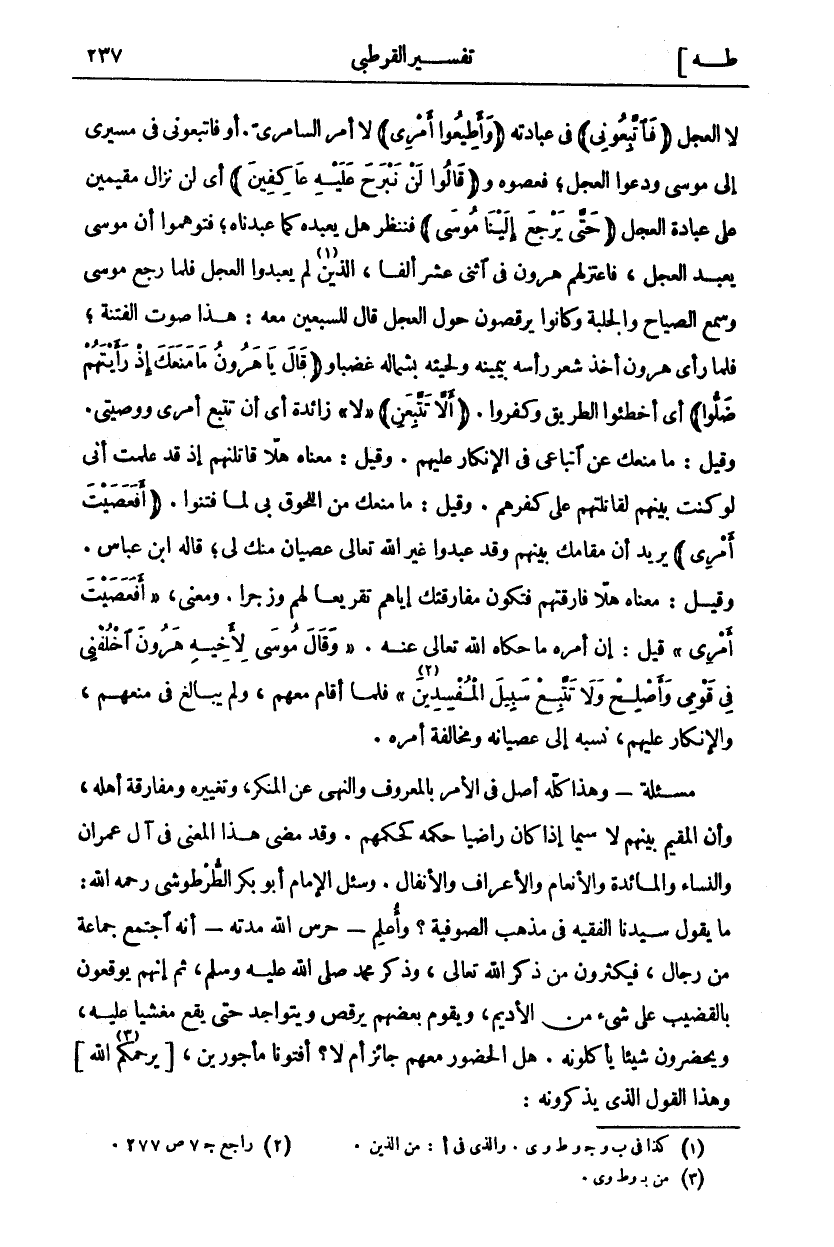 طه] تفسير القرطبى ٢٣٧
لا العجل ﴿فَٱتَّبِعُونِى﴾ فى عبادته ﴿وَأَطِيعُوا أَمْرِى﴾ لا أمر السامرىّ. أو فاتبعونى فى مسيرى
إلى موسى ودعوا العجل؛ فعصوه و ﴿قَالُوا لَنْ نَبْرَحَ عَلَيْهِ عَاكِفِينَ﴾ أى لن نزال مقيمين
على عبادة العجل ﴿حَتَّى يَرْجِعَ إِلَيْنَا مُوسَى﴾ فننظر هل يعبده كما عبدناه؛ فتوهموا أن موسى
يعبد العجل، فاعتزلهم هرون فى ٱثنى عشر ألفا، الذين(١) لم يعبدوا العجل فلما رجع موسى
وسمع الصياح والجلبة وكانوا يرقصون حول العجل قال للسبعين معه : هذا صوت الفتنة؛
فلما رأى هرون أخذ شعر رأسه بيمينه ولحيته بشماله غضبا و ﴿قَالَ يَاهَرُونُ مَامَنَعَكَ إِذْ رَأَيْتَهُمْ
ضَلُّوا﴾ أى أخطئوا الطريق وكفروا. ﴿أَلَّا تَتَّبِعَنِ﴾ «لا» زائدة أى أن تتبع أمرى ووصيتى.
وقيل : ما منعك عن ٱتباعى فى الإنكار عليهم. وقيل : معناه هلّا قاتلتهم إذ قد علمت أنى
لو كنت بينهم لقاتلتهم على كفرهم. وقيل : ما منعك من اللحوق بى لما فتنوا. ﴿أَفَعَصَيْتَ
أَمْرِى﴾ يريد أن مقامك بينهم وقد عبدوا غير الله تعالى عصيان منك لى؛ قاله ابن عباس.
وقيل : معناه هلّا فارقتهم فتكون مفارقتك إياهم تقريعا لهم وزجرا. ومعنى، «أَفَعَصَيْتَ
أَمْرِى» قيل : إن أمره ما حكاه الله تعالى عنه. «وَقَالَ مُوسَى لِأَخِيهِ هَرُونَ ٱخْلُفْنِى
فِى قَوْمِى وَأَصْلِحْ وَلَا تَتَّبِعْ سَبِيلَ الْمُفْسِدِينَ(٢)» فلما أقام معهم، ولم يبالغ فى منعهم،
والإنكار عليهم، نسبه إلى عصيانه ومخالفة أمره.
مسئلة — وهذا كلّه أصل فى الأمر بالمعروف والنهى عن المنكر، وتغييره ومفارقة أهله،
وأن المقيم بينهم لا سيما إذا كان راضيا حكمه كحكمهم. وقد مضى هذا المعنى فى آل عمران
والنساء والمائدة والأنعام والأعراف والأنفال. وسئل الإمام أبو بكر الطُّرْطوشى رحمه الله:
ما يقول سيدنا الفقيه فى مذهب الصوفية؟ وأُعلِم — حرس الله مدته — أنه ٱجتمع جماعة
من رجال، فيكثرون من ذكر الله تعالى، وذكر محمد صلى الله عليه وسلم، ثم إنهم يوقعون
بالقضيب على شىء من الأديم، ويقوم بعضهم يرقص ويتواجد حتى يقع مغشيا عليه،
ويحضرون شيئا يأكلونه. هل الحضور معهم جائز أم لا؟ أفتونا مأجورين، [يرحمكم(٣) الله]
وهذا القول الذى يذكرونه :
(١) كذا فى ب و جـ و ط و ى. والذى فى أ : من الذين. (٢) راجع جـ ٧ ص ٢٧٧.
(٣) من بـ و ط و ى.